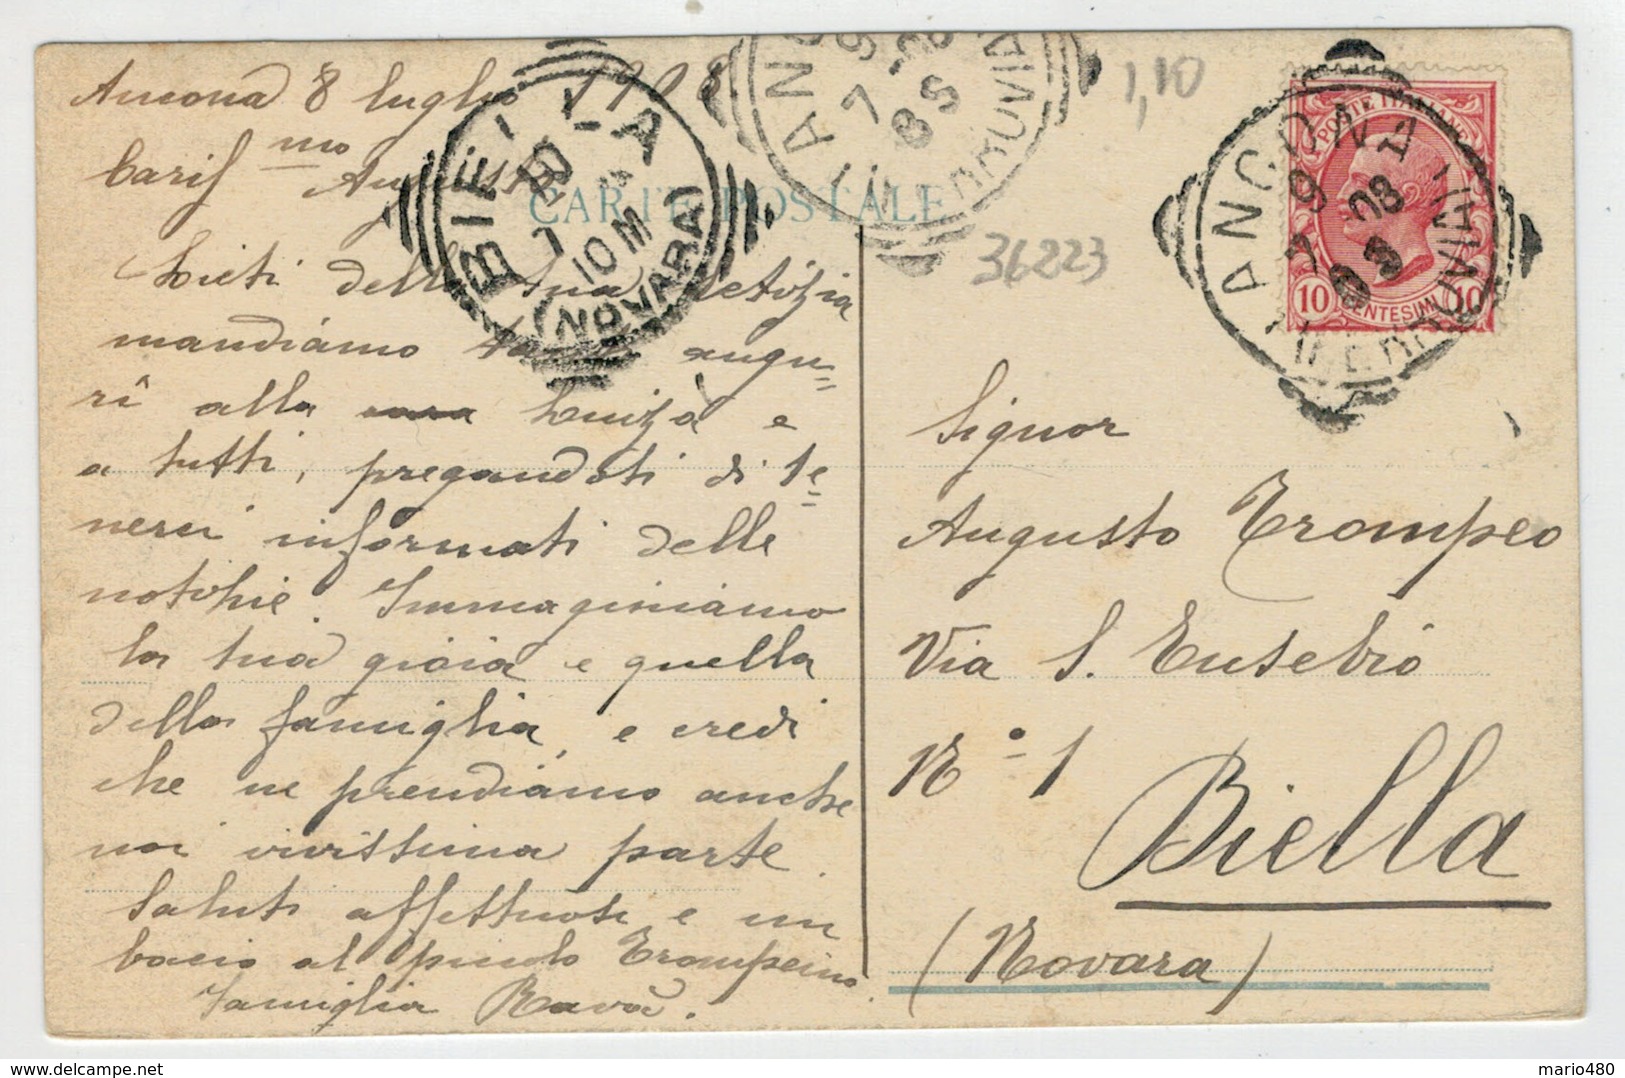 Ancona 8 luglio 1908
Carissmo Augusto
Lieti della tua notizia
mandiamo tanti augu=
ri alla cara Luiza e
a tutti, pregandoti di te=
nerci informati delle
notizie. Immaginiamo
la tua gioia e quella
della famiglia, e credi
che ne prendiamo anche
noi vivissima parte.
Saluti affettuosi e un
bacio al piccolo Trompeino.
Famiglia Ravà.
CARTE POSTALE
BIELLA
7
10 M
(NOVARA)
ANCONA
7 9
8S
FERROVIA
1,10
36223
POSTE ITALIANE
10 CENTESIMI 10
ANCONA
7 9 08
8S
FERROVIA
Signor
Augusto Trompeo
Via S. Eusebio
N° 1
Biella
(Novara)
mario480